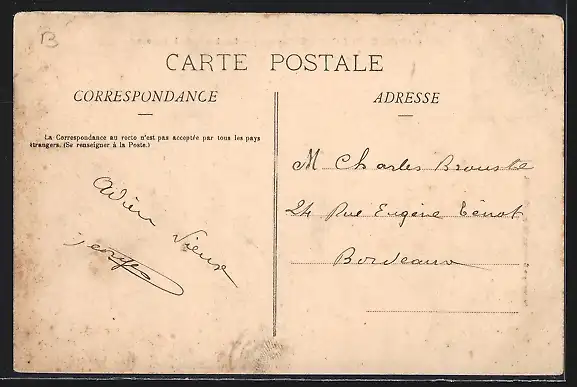 B
CARTE POSTALE
CORRESPONDANCE
La Correspondance au recto n'est pas acceptée par tous les pays
étrangers. (Se renseigner à la Poste.)
Adieu Vieux
Georges
ADRESSE
M Charles Brouste
24 Rue Eugène Ténot
Bordeaux